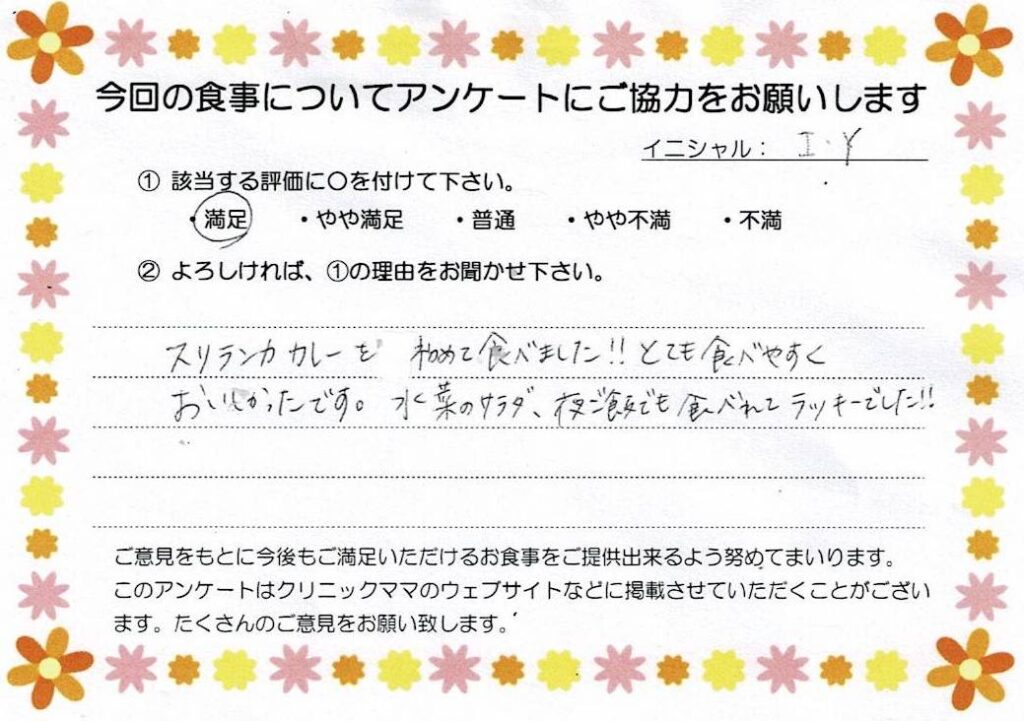 今回の食事についてアンケートにご協力をお願いします
イニシャル： I・Y
① 該当する評価に〇を付けて下さい。
・満足 ・やや満足 ・普通 ・やや不満 ・不満
② よろしければ、①の理由をお聞かせ下さい。
スリランカカレーを 初めて食べました!! とても食べやすく
おいしかったです。水菜のサラダ、夜ご飯でも食べれてラッキーでした!!
ご意見をもとに今後もご満足いただけるお食事をご提供出来るよう努めてまいります。
このアンケートはクリニックママのウェブサイトなどに掲載させていただくことがござい
ます。たくさんのご意見をお願い致します。